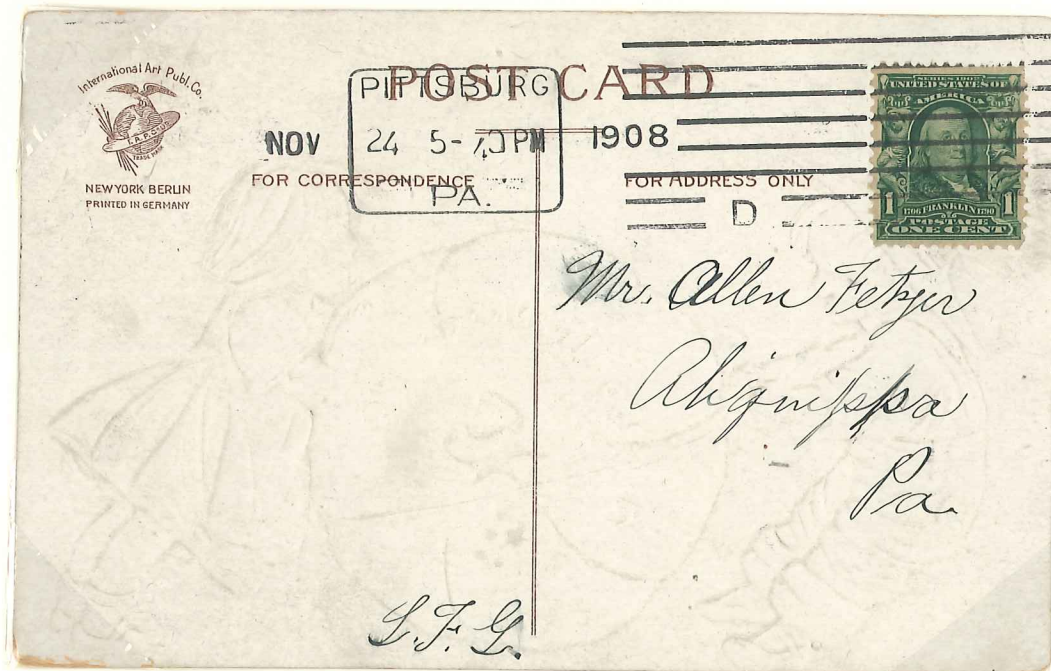 International Art Publ. Co.
TRADE MARK
NEW YORK BERLIN
PRINTED IN GERMANY
POST CARD
PITTSBURG
NOV 24 5- PM 1908
PA.
D
FOR CORRESPONDENCE
FOR ADDRESS ONLY
SERIES 1902
UNITED STATES OF
AMERICA
1 1
1706 FRANKLIN 1790
POSTAGE
ONE CENT
Mr. Allen Fetzer
Aliquippa
Pa.